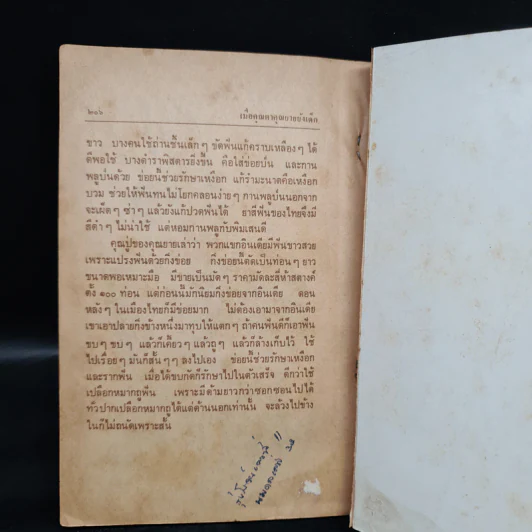 ๒๓๖ เมื่อคุณตาคุณยายยังเด็ก
ขาว บางคนใช้ถ่านชิ้นเล็กๆ ขัดฟันแก้คราบเหลืองๆ ได้
ดีพอใช้ บางตำราพิสดารยิ่งขึ้น คือใส่ข่อยป่น และกาน
พลูป่นด้วย ข่อยนี้ช่วยรักษาเหงือก แก้รำมะนาดคือเหงือก
บวม ช่วยให้ฟันทนไม่โยกคลอนง่ายๆ กานพลูป่นนอกจาก
จะเผ็ดๆ ซ่าๆ แล้วยังแก้ปวดฟันได้ ยาสีฟันของไทยจึงมี
สีดำๆ ไม่น่าใช้ แต่หอมกานพลูกับพิมเสนดี
คุณปู่ของคุณยายเล่าว่า พวกแขกอินเดียมีฟันขาวสวย
เพราะแปรงฟันด้วยกิ่งข่อย กิ่งข่อยนี้ตัดเป็นท่อนๆ ยาว
ขนาดพอเหมาะมือ มีขายเป็นมัดๆ ราคามัดละสี่ห้าสตางค์
ตั้ง ๑๐๐ ท่อน แต่ก่อนนี้มักนิยมกิ่งข่อยจากอินเดีย ตอน
หลังๆ ในเมืองไทยก็มีข่อยมาก ไม่ต้องเอามาจากอินเดีย
เขาเอาปลายกิ่งข้างหนึ่งมาทุบให้แตกๆ ถ้าคนฟันดีก็เอาฟัน
ขบๆ ขบๆ แล้วก็เคี้ยวๆ แล้วถูๆ แล้วก็ล้างเก็บไว้ ใช้
ไปเรื่อยๆ มันก็สั้นๆๆ ลงไปเอง ข่อยนี้ช่วยรักษาเหงือก
และรากฟัน เมื่อได้ขบกัดก็รักษาไปในตัวเสร็จ ดีกว่าใช้
เปลือกหมากถูฟัน เพราะมีด้ามยาวกว่าซอกซอนไปได้
ทั่วปากเปลือกหมากถูได้แต่ด้านนอกเท่านั้น จะล้วงไปข้าง
ในก็ไม่ถนัดเพราะสั้น